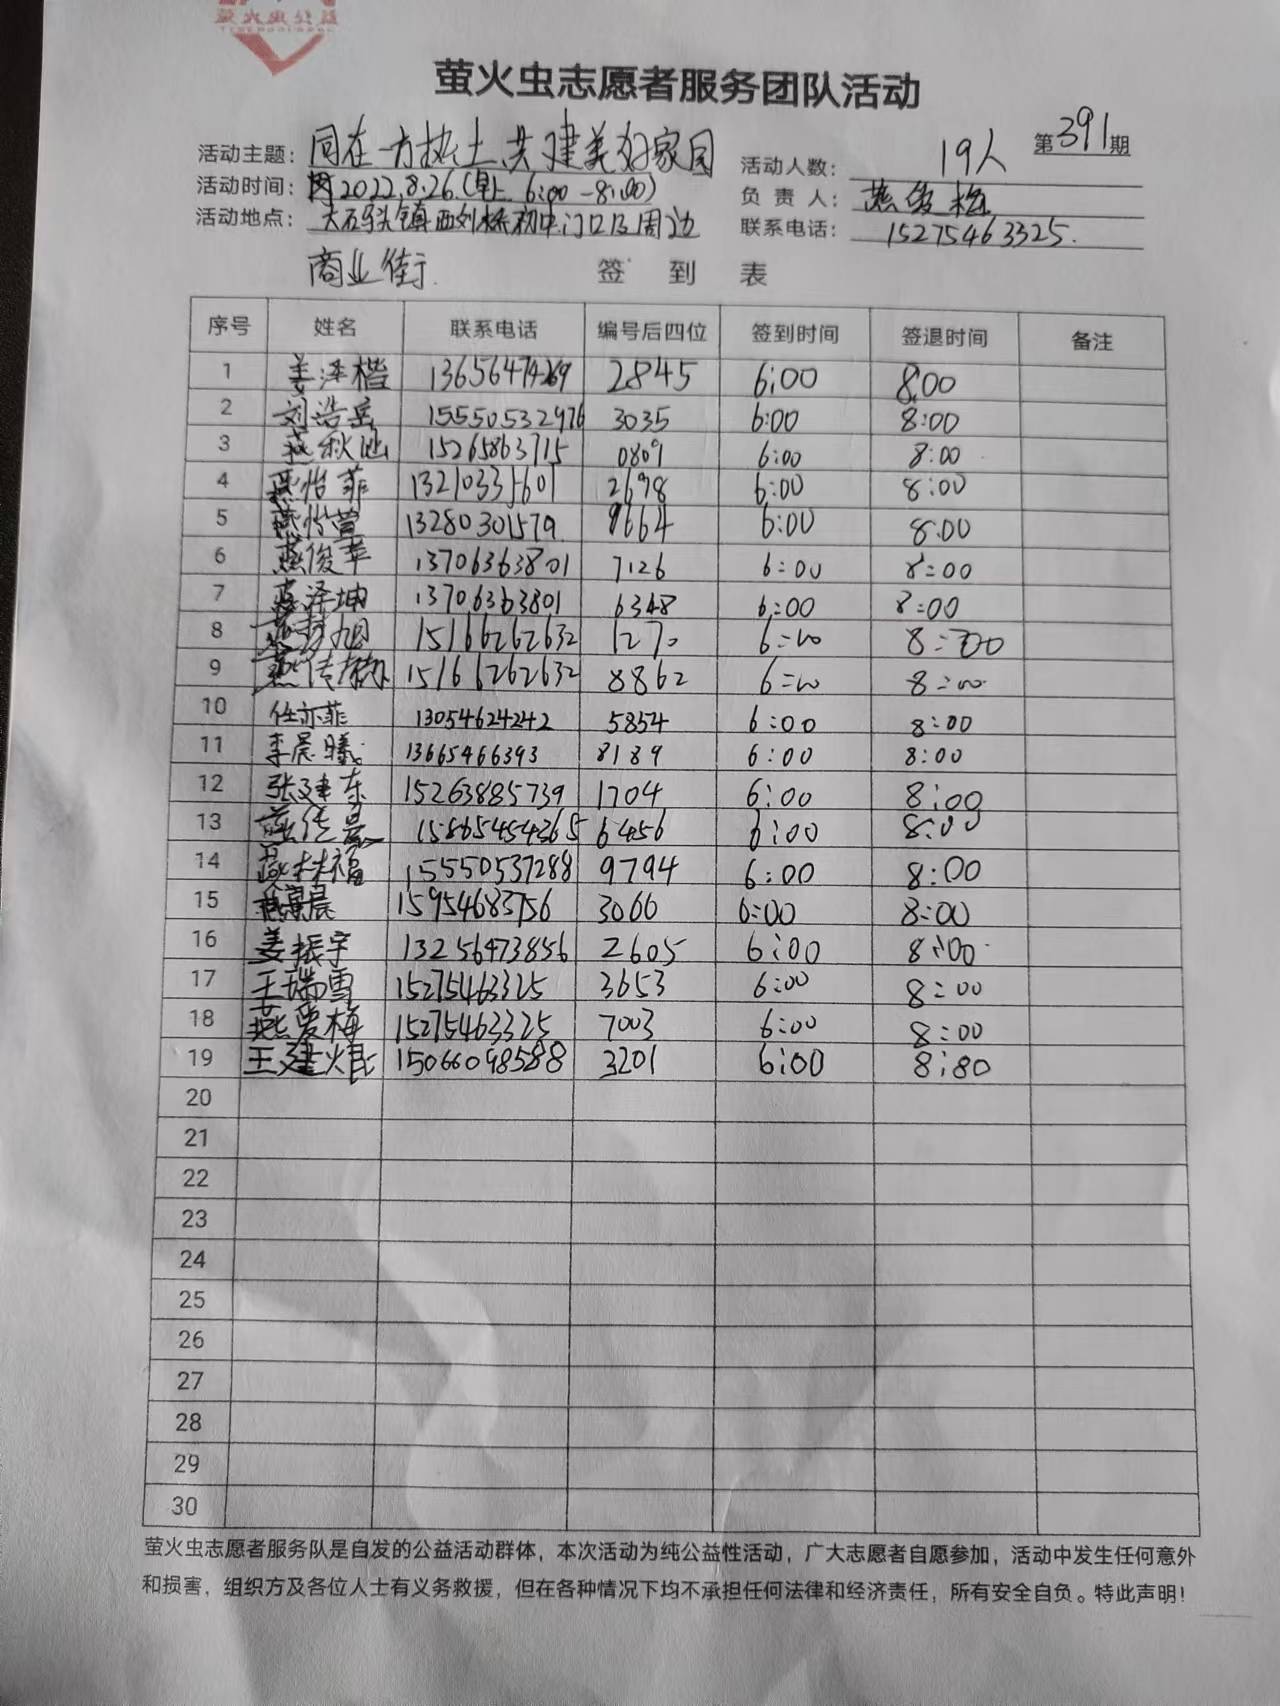 萤火虫志愿者服务团队活动
第391期
活动主题：同在一方热土 共建美好家园
活动人数：19人
活动时间：2022.8.26.(早上 6:00-8:00)
负责人：燕爱梅
活动地点：大码头镇西刘桥初中门口及周边
联系电话：15275463325.
商业街
签到表
序号 姓名 联系电话 编号后四位 签到时间 签退时间 备注
1 姜泽楷 13656474269 2845 6:00 8:00
2 刘浩岳 15550532976 3035 6:00 8:00
3 燕秋 15265863715 0809 6:00 8:00
4 燕怡菲 13210335601 2698 6:00 8:00
5 燕怡萱 13280301579 9664 6:00 8:00
6 燕俊苹 13706363801 7126 6:00 8:00
7 燕泽坤 13706363801 6348 6:00 8:00
8 旭 15166262632 1270 6:00 8:00
9 燕传 15166262632 8862 6:00 8:00
10 任亦菲 13054624242 5854 6:00 8:00
11 李晨曦 13665466393 8189 6:00 8:00
12 张建东 15263885739 1704 6:00 8:00
13 燕传 15865454365 6456 6:00 8:00
14 福 15550537288 9794 6:00 8:00
15 晨 15954683756 3066 6:00 8:00
16 姜振宇 13256473856 2605 6:00 8:00
17 王瑞雪 15275463325 3653 6:00 8:00
18 燕爱梅 15275463325 7003 6:00 8:00
19 王建焜 15066098588 3201 6:00 8:80
20
21
22
23
24
25
26
27
28
29
30
萤火虫志愿者服务队是自发的公益活动群体，本次活动为纯公益性活动，广大志愿者自愿参加，活动中发生任何意外
和损害，组织方及各位人士有义务救援，但在各种情况下均不承担任何法律和经济责任，所有安全自负。特此声明！